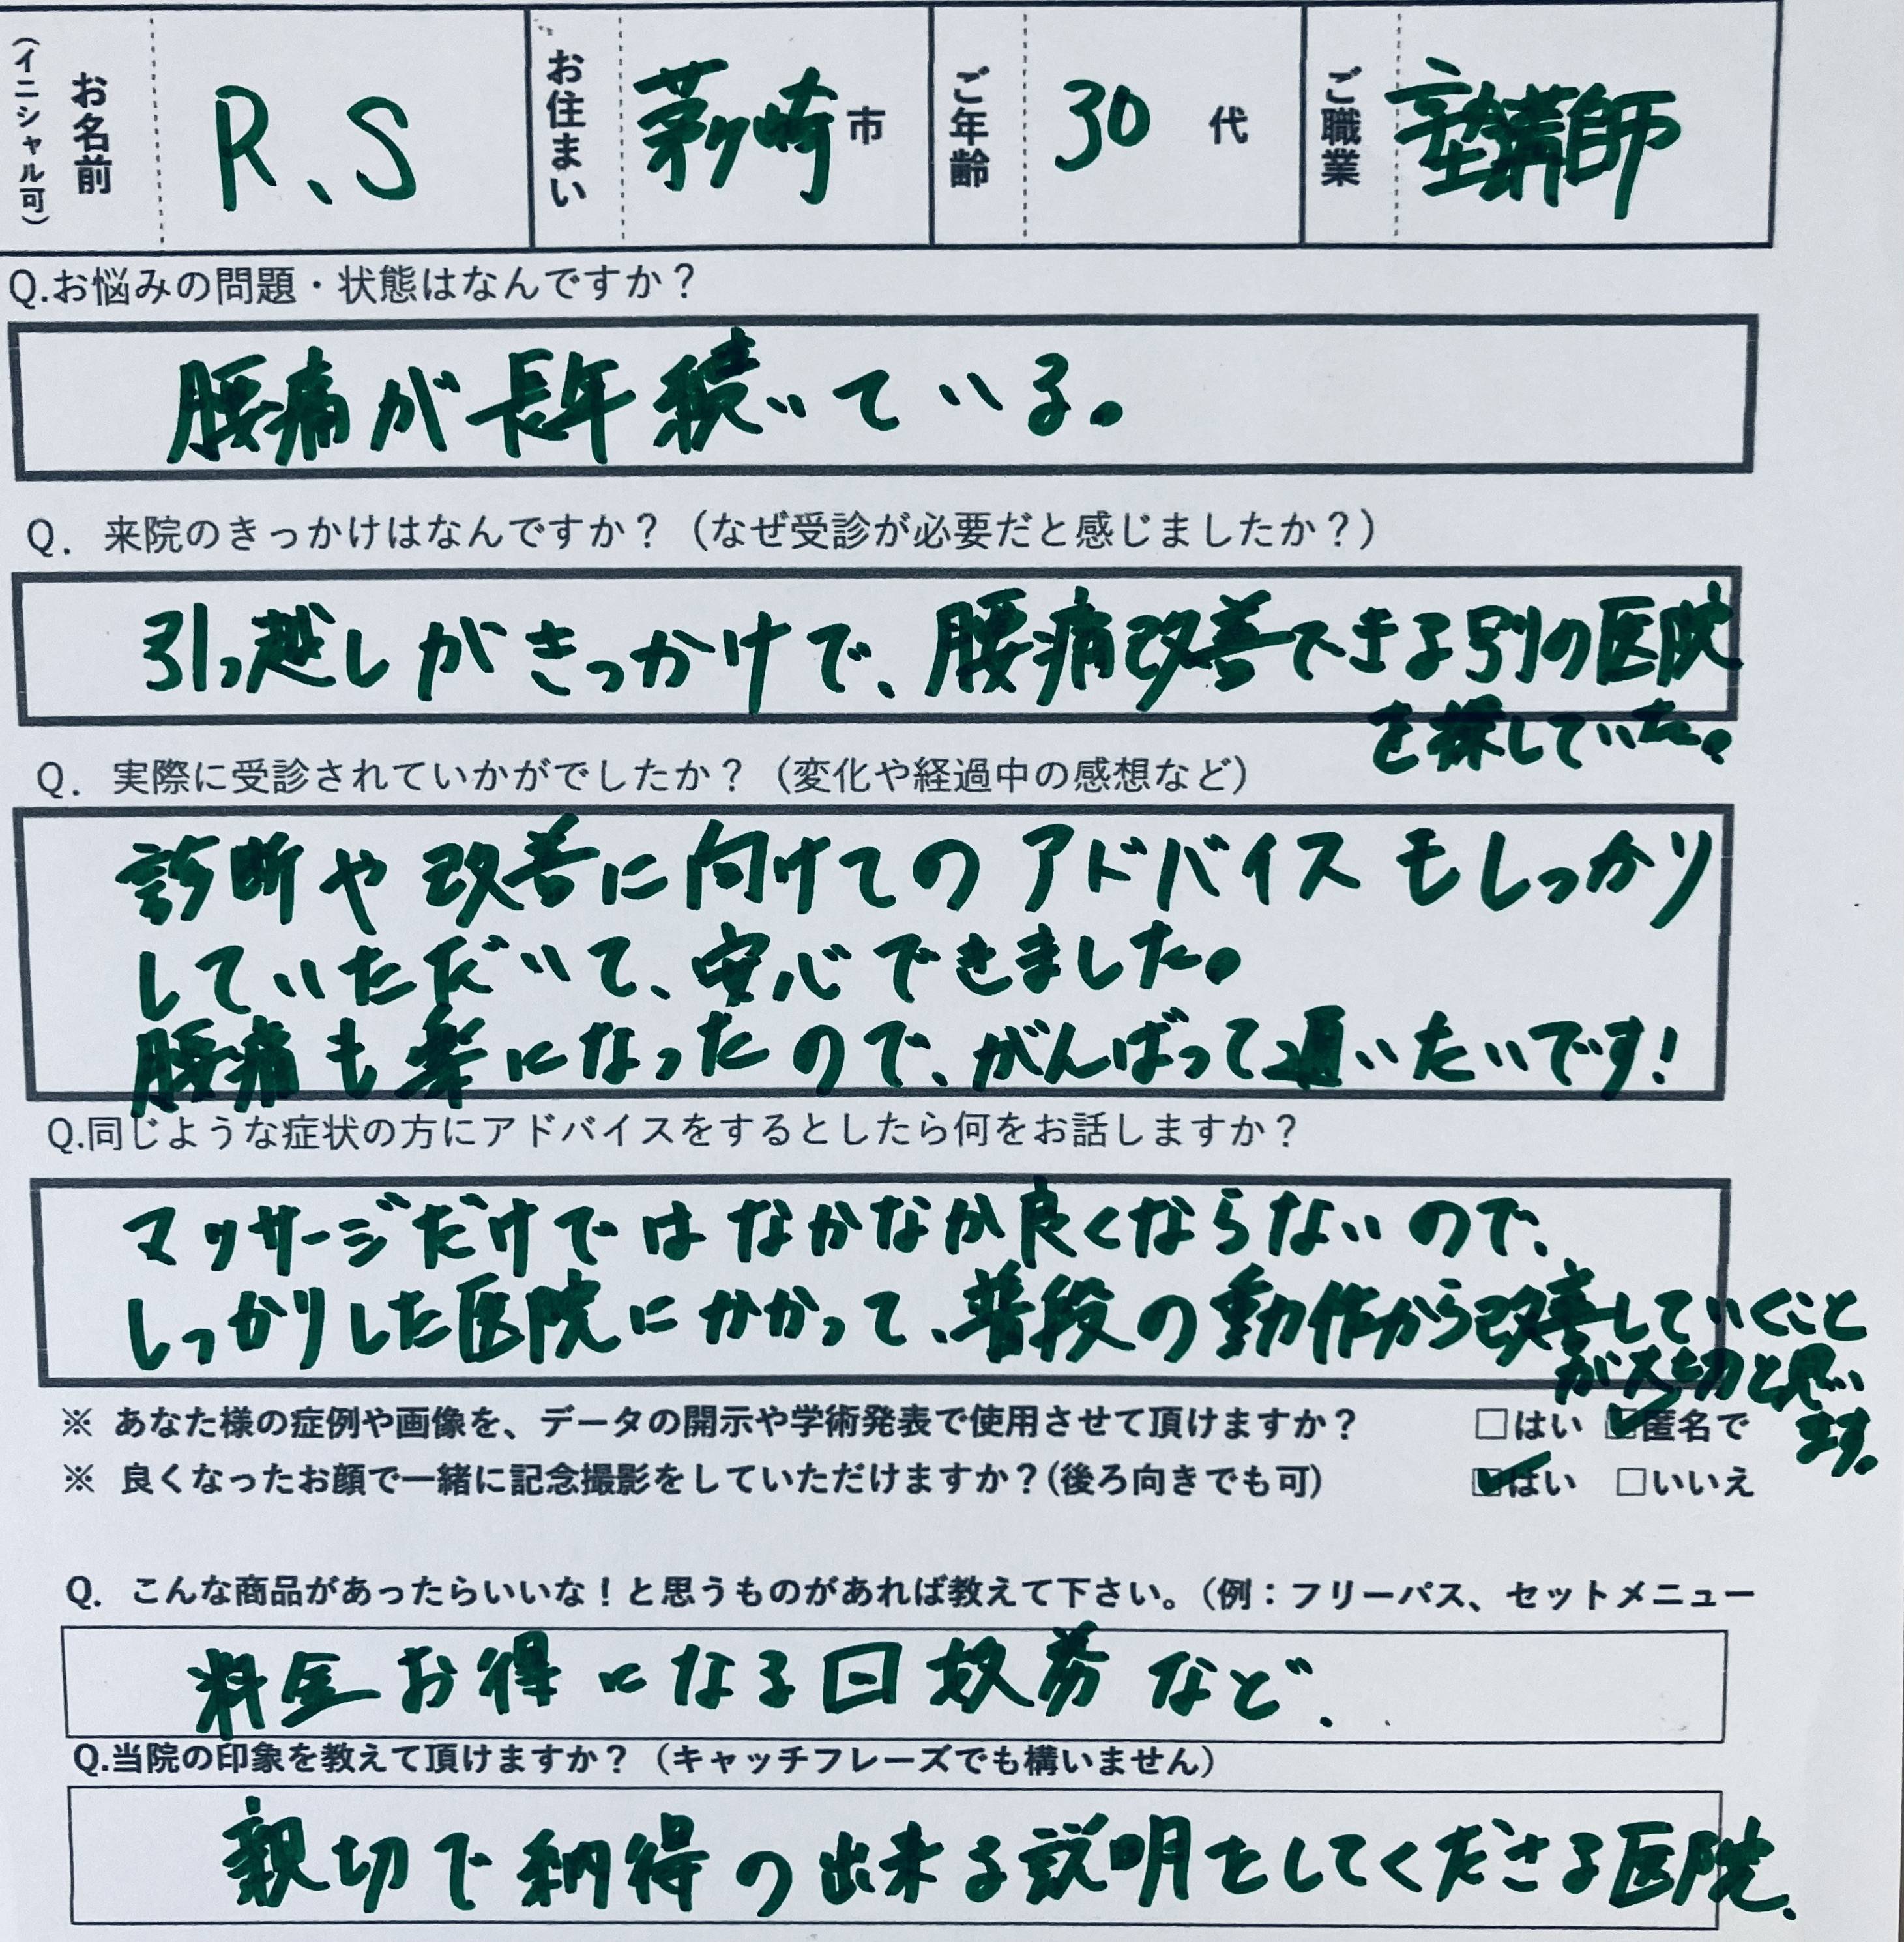 お名前（イニシャル可） R、S お住まい 茅ヶ崎 市 ご年齢 30 代 ご職業 塾講師
Q.お悩みの問題・状態はなんですか？
腰痛が長年続いている。
Q．来院のきっかけはなんですか？（なぜ受診が必要だと感じましたか？）
引っ越しがきっかけで、腰痛改善できる別の医院
を探していた。
Q．実際に受診されていかがでしたか？（変化や経過中の感想など）
診断や改善に向けてのアドバイスもしっかり
していただいて、安心できました。
腰痛も楽になったので、がんばって通いたいです！
Q.同じような症状の方にアドバイスをするとしたら何をお話しますか？
マッサージだけではなかなか良くならないので、
しっかりした医院にかかって、普段の動作から改善していくこと
が大切と思い
ます。
※ あなた様の症例や画像を、データの開示や学術発表で使用させて頂けますか？ □はい ☑匿名で
※ 良くなったお顔で一緒に記念撮影をしていただけますか？(後ろ向きでも可) ☑はい □いいえ
Q．こんな商品があったらいいな！と思うものがあれば教えて下さい。（例：フリーパス、セットメニュー
料金お得になる回数券など．
Q.当院の印象を教えて頂けますか？（キャッチフレーズでも構いません）
親切で納得の出来る説明をしてくださる医院．